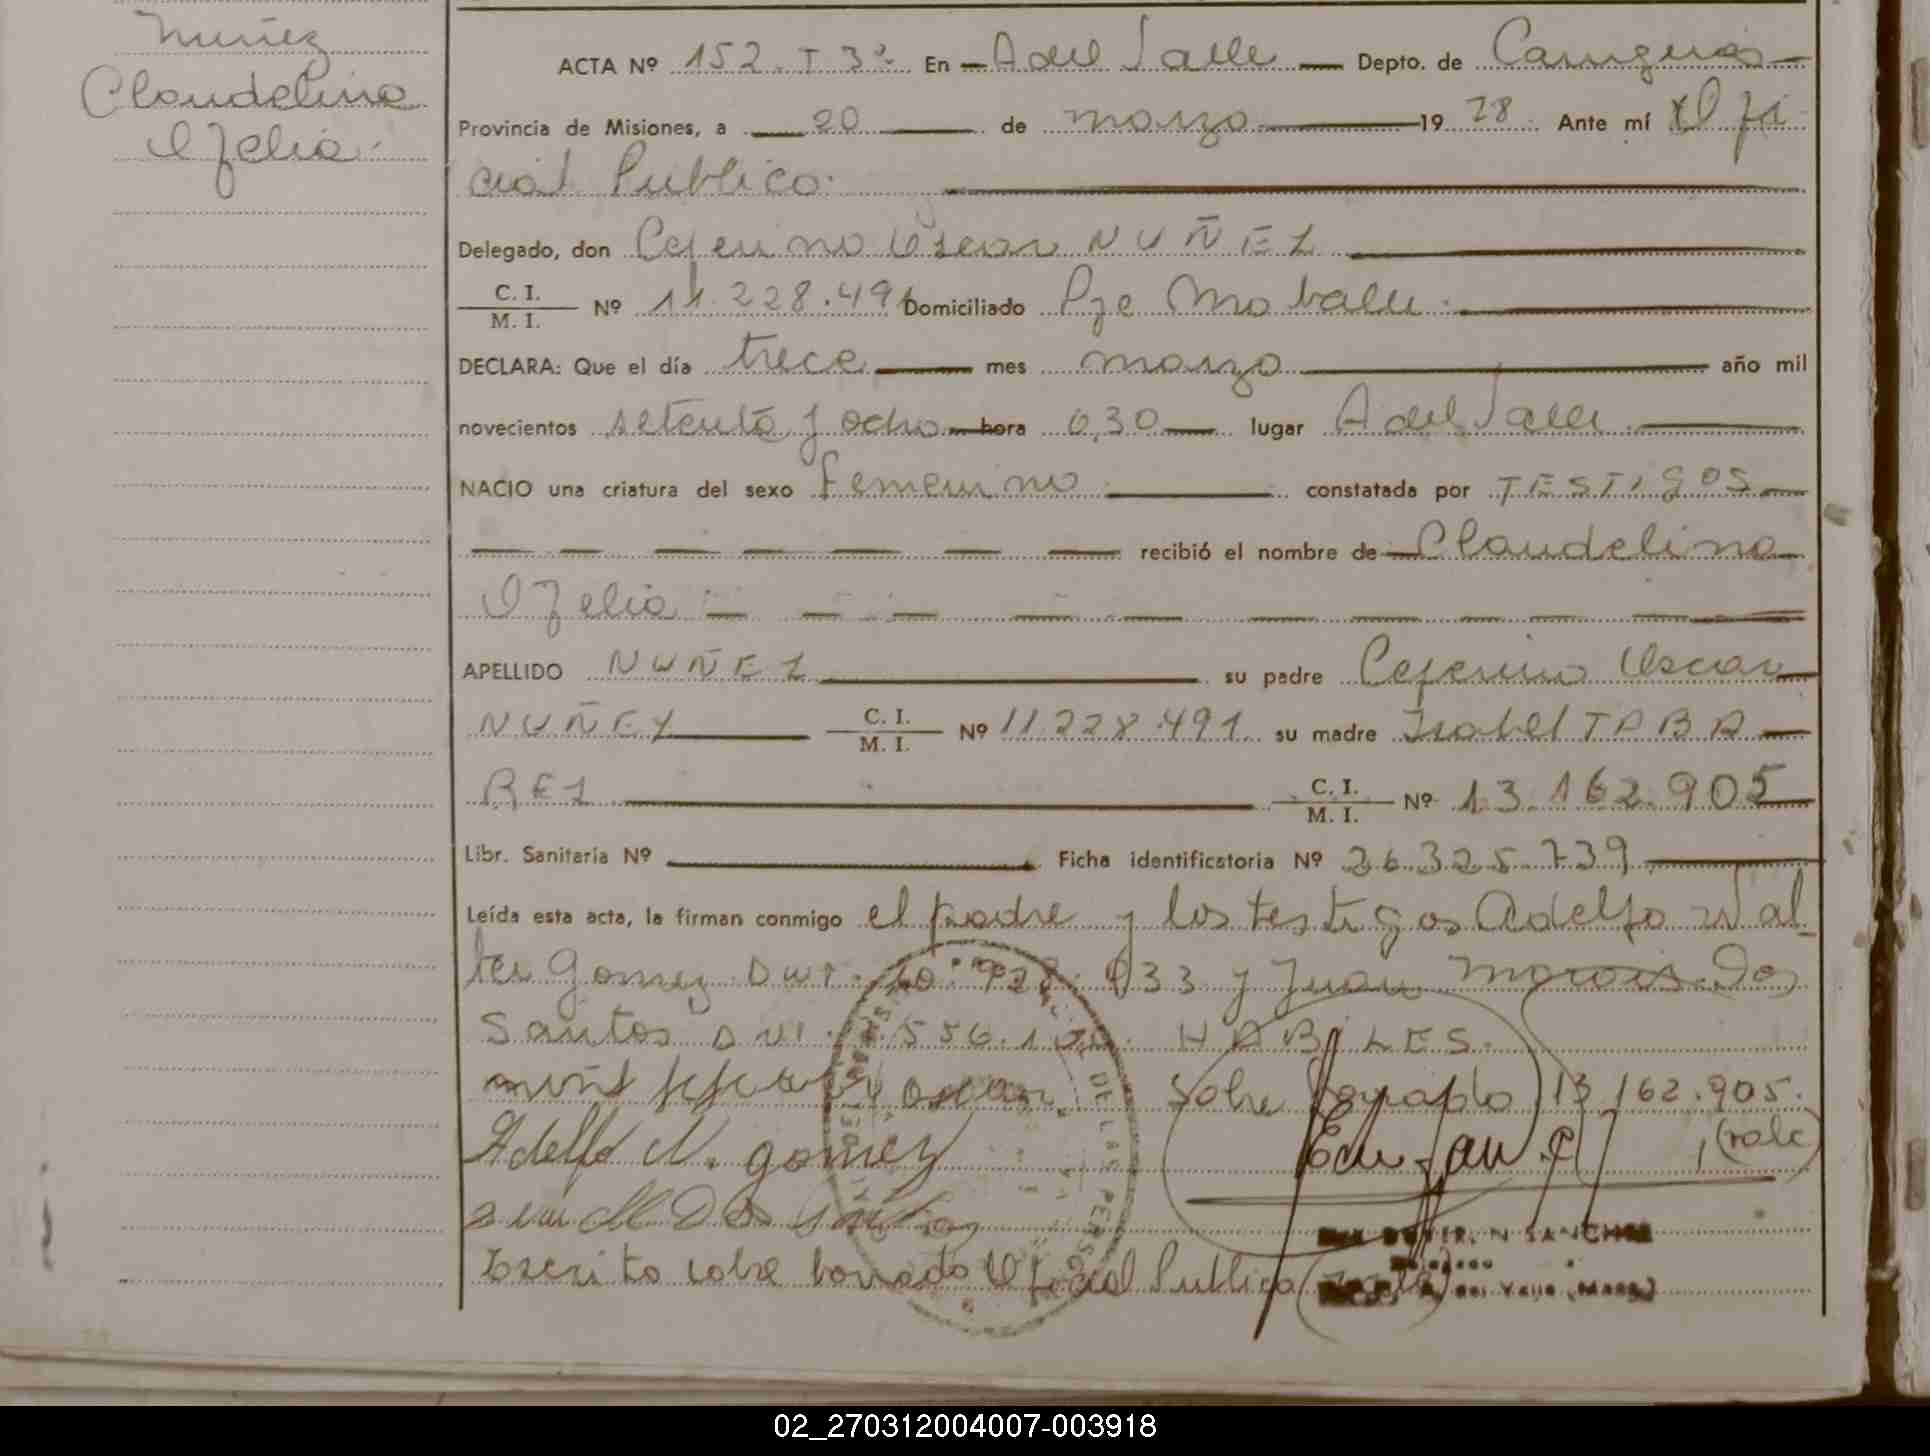 Nuñez
Claudelina
Ofelia.
ACTA Nº 152. T 3º En A del Valle Depto. de Cainguas
Provincia de Misiones, a 20 de marzo 19 78 Ante mí Ofi
cial Publico.
Delegado, don Ceferino Oscar NUÑEZ
C. I.
M. I. Nº 11.228.491 Domiciliado Pje Mo Valle.
DECLARA: Que el día trece mes marzo año mil
novecientos setenta y ocho hora 6,30 lugar A del Valle
NACIO una criatura del sexo femenino constatada por TESTIGOS
recibió el nombre de Claudelina
Ofelia
APELLIDO NUÑEZ su padre Ceferino Oscar
NUÑEZ C. I.
M. I. Nº 11.228.491 su madre Isabel TABA
REZ C. I.
M. I. Nº 13.162.905
Libr. Sanitaria Nº Ficha identificatoria Nº 26.325.739
Leída esta acta, la firman conmigo el padre y los testigos Adelfo Wal
ter Gomez DNI. 10.928.033 y Juan Dos
Santos DNI. HABILES.
Sobre 13.162.905.
(vale)
Adelfo W. gomez
SANCHEZ
Escrito sobre borrado Oficial Publico
DE LAS PERSO
del Valle
02_270312004007-003918